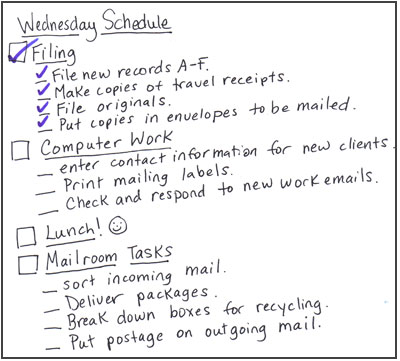 Wednesday Schedule
Filing
File new records A-F.
Make copies of travel receipts.
File originals.
Put copies in envelopes to be mailed.
Computer Work
enter contact information for new clients.
Print mailing labels.
Check and respond to new work emails.
Lunch!
Mailroom Tasks
sort incoming mail.
Deliver packages.
Break down boxes for recycling.
Put postage on outgoing mail.